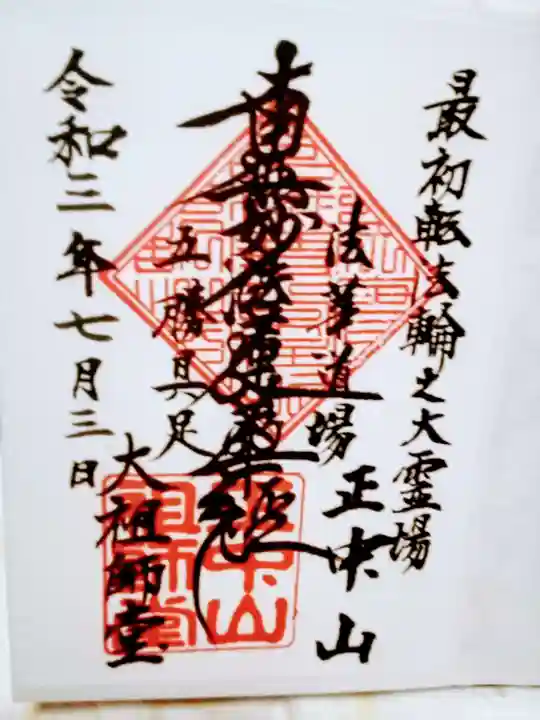 最初転法輪之大霊場
法華道場
正中山
南無妙法蓮華経
五勝具足
大祖師堂
令和三年七月三日
正中山
祖師堂